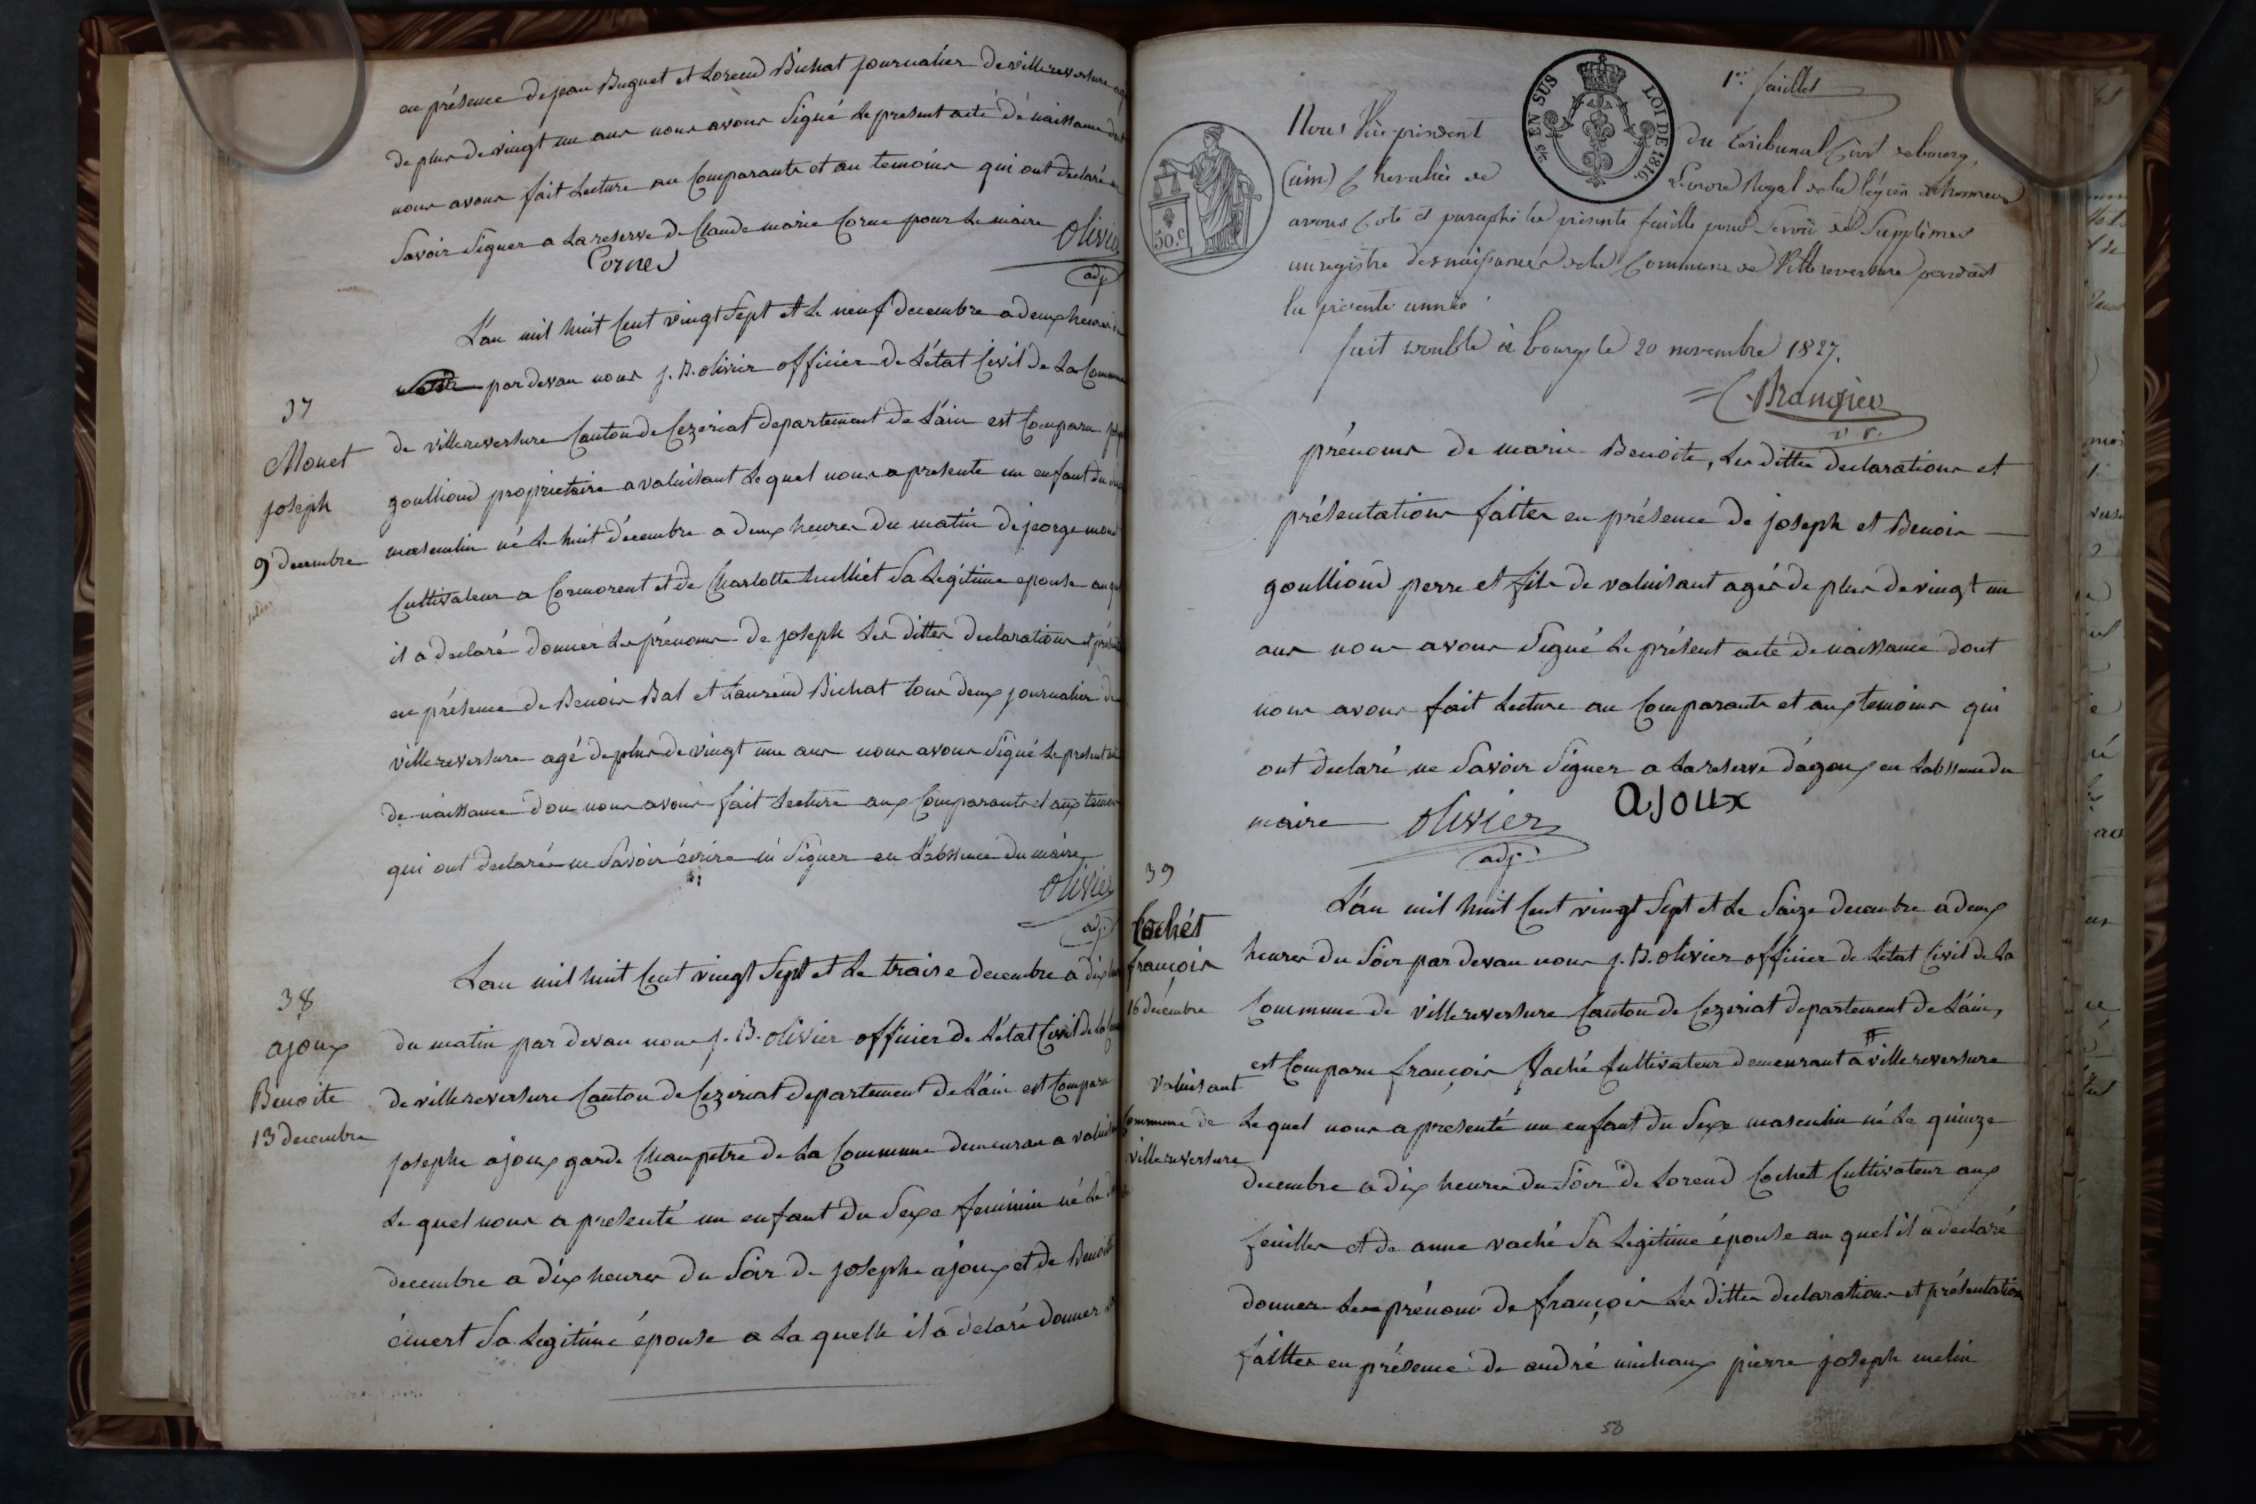 en présence de jean Buguet et Lorend Bichat journalier de villereversure
de plus de vingt un ans nous avons signé le present acte de naissance
nous avons fait lecture au comparants et au temoins qui ont declaré
savoir signer a la reserve de Claude marie Corne pour le maire
Corne
olivier
adj
37
Monet
joseph
9 decembre
L'an mil huit cent vingt sept et le neuf decembre a deux heures
par devan nous j. B. olivier officier de l'état civil de la Commune
de villereversure canton de Cezeriat departement de l'ain est comparu
goulliond proprietaire a valuisant le quel nous a presente un enfant du
masculin né le huit décembre a deux heures du matin de jeorge monet
Cultivateur a Cormorent et de Charlotte sa legitime epouse au
il a declaré donner les prénoms de joseph les dittes declarations et
en présence de Benoir Bal et Laurend Bichat tous deux journalier de
villereversure agé de plus de vingt un ans nous avons signé le present
de naissance don nous avons fait lecture aux comparants et aux temoins
qui ont declarés ne savoir écrire ni signer en l'abssence du maire
olivier
adj.
38
ajoux
Benoite
13 decembre
L'an mil huit cent vingt sept et le traise decembre a dix
du matin par devan nous j. B. olivier officier de l'état civil de la
de villereversure canton de Cezeriat departement de l'ain est comparu
josephe ajoux garde champetre de la Commune demeuran a valuisant
le quel nous a presenté un enfant du sexe feminin né le
decembre a dix heures du soir de josephe ajoux et de Benoite
émert sa legitime épouse a la quelle il a déclaré donner
1er. feuillet
Nous Vice président du tribunal civil de bourg,
(ain) Chevalier de L'ordre Royal de la légion d'honneur
avons coté et paraphé la présente feuille pour servir de Supplément
au registre des naissances de la Commune de Villereversure pendant
la présente année
fait double à bourg le 20 novembre 1827.
v. p.
5/3 EN SUS
LOI DE 1816.
50.c
prénoms de marie Benoite, les dittes declarations et
présentations faittes en présence de joseph et Benoir
goulliond perre et fils de valuisant agés de plus de vingt un
ans nous avons signé le présent acte de naissance dont
nous avons fait lecture au comparants et aux temoins qui
ont declaré ne savoir signer a la reserve d'ágoux en l'abssence du
maire olivier ajoux
adj.
39
Cochét
françois
16 decembre
L'an mil huit cent vingt sept et le saize decembre a deux
heures du soir par devan nous j. B. olivier officier de l'état civil de la
Commune de villereversure canton de Cezeriat departement de l'ain,
est comparu françois Vaché Cultivateur demeurant a # villereversure
valuisant
commune de
villereversure
le quel nous a présenté un enfant du sexe masculin né le quinze
decembre a dix heures du soir de Lorend Cochet Cultivateur aux
feuilles et de anne vaché sa legitime épouse au quel il a declaré
donner les prénoms de françois les dittes declarations et présentations
faittes en présence de andré michaux pierre joseph melin
58